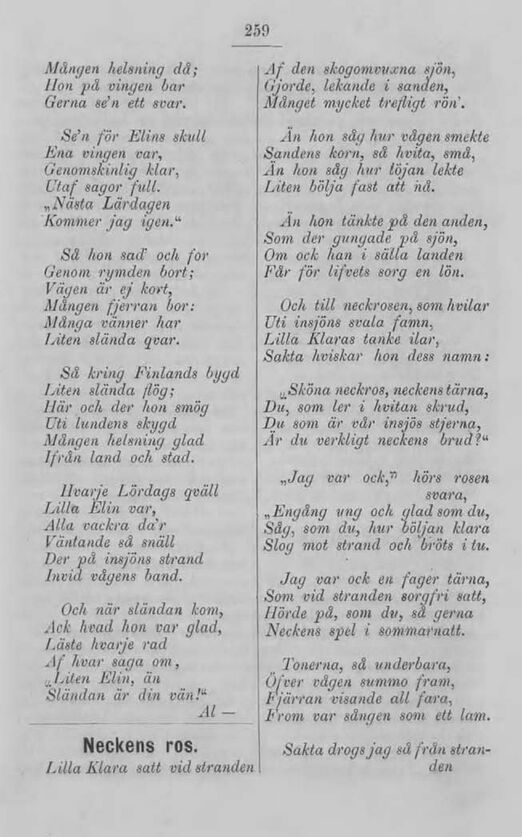 259
Mången helsning då;
Hon på vingen bar
Gerna se'n ett svar.
Se'n för Elins skull
Ena vingen var,
Genomskinlig klar,
Utaf sagor full.
„Nästa Lärdagen
Kommer jag igen.“
Så hon sad' och for
Genom rymden bort;
Vägen är ej kort,
Mången fjerran bor:
Många vänner har
Liten slända qvar.
Så kring Finlands bygd
Liten slända flög;
Här och der hon smög
Uti lundens skygd
Mången helsning glad
Ifrån land och stad.
Hvarje Lördags qväll
Lilla Elin var,
Alla vackra da'r
Väntande så snäll
Der på insjöns strand
Invid vågens band.
Och när sländan kom,
Ack hvad hon var glad,
Läste hvarje rad
Af hvar saga om,
„Liten Elin, än
Sländan är din vän!“
Al —
Neckens ros.
Lilla Klara satt vid stranden
Af den skogomvuxna sjön,
Gjorde, lekande i sanden,
Månget mycket trefligt rön'.
Än hon såg hur vågen smekte
Sandens korn, så hvita, små,
Än hon såg hur löjan lekte
Liten bölja fast att nå.
Än hon tänkte på den anden,
Som der gungade på sjön,
Om ock han i sälla landen
Får för lifvets sorg en lön.
Och till neckrosen, som hvilar
Uti insjöns svala famn,
Lilla Klaras tanke ilar,
Sakta hviskar hon dess namn:
„Sköna neckros, neckens tärna,
Du, som ler i hvitan skrud,
Du som är vår insjös stjerna,
Är du verkligt neckens brud?“
„Jag var ock,” hörs rosen
svara,
„Engång ung och glad som du,
Såg, som du, hur böljan klara
Slog mot strand och bröts i tu.
Jag var ock en fager tärna,
Som vid stranden sorgfri satt,
Hörde på, som du, så gerna
Neckens spel i sommarnatt.
Tonerna, så underbara,
Öfver vågen summo fram,
Fjärran visande all fara,
From var sången som ett lam.
Sakta drogs jag så från stran-
den